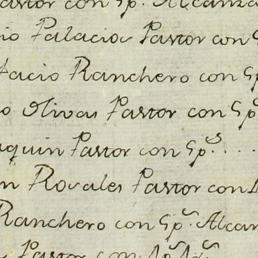 Pastor con Gpᵒ. Alcanza
io Palacios Pastor con G
tacio Ranchero con Gp
o Olivas Pastor con Gpᵒ
aquin Pastor con Gpˢ. ....
n Rosales Pastor con
Ranchero con Gpˢ. Alcan
Pastor con